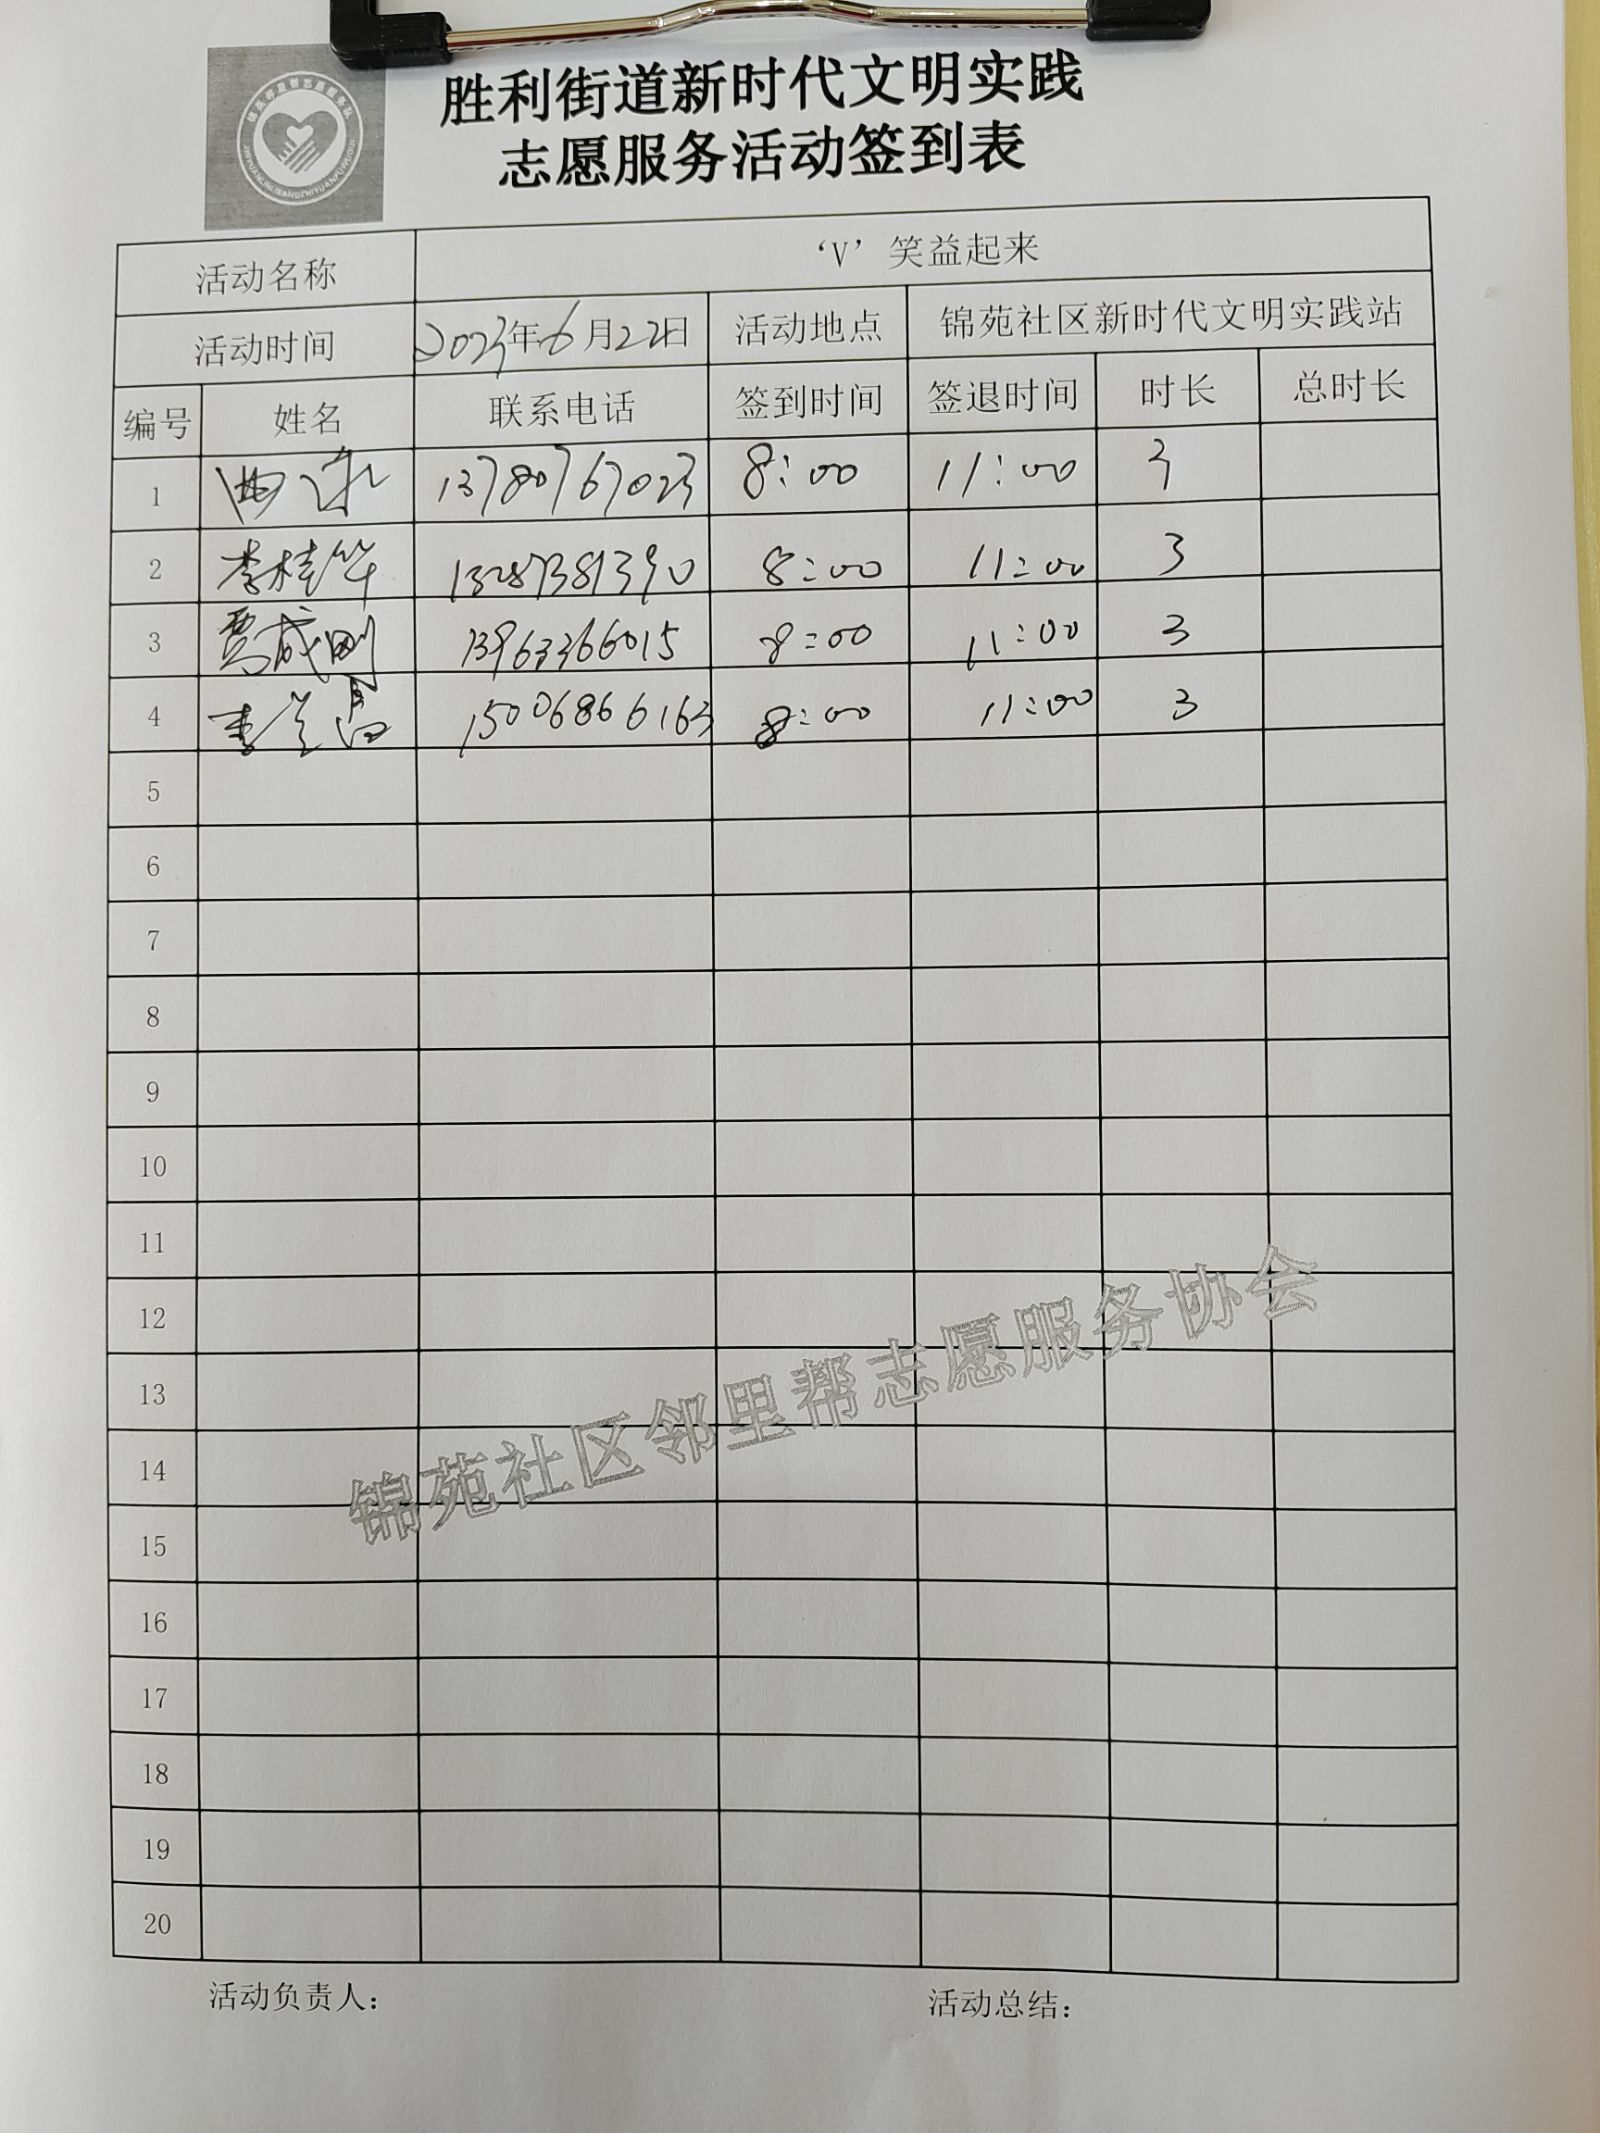 胜利街道新时代文明实践
志愿服务活动签到表
活动名称 ‘V’笑益起来
活动时间 2023年6月22日 活动地点 锦苑社区新时代文明实践站
编号 姓名 联系电话 签到时间 签退时间 时长 总时长
1 曲 13780767023 8:00 11:00 3
2 李桂华 13287381390 8:00 11:00 3
3 贾成刚 13963366015 8:00 11:00 3
4 李兰昌 15006866163 8:00 11:00 3
5
6
7
8
9
10
11
12
13
14
15
16
17
18
19
20
锦苑社区邻里帮志愿服务协会
活动负责人： 活动总结：